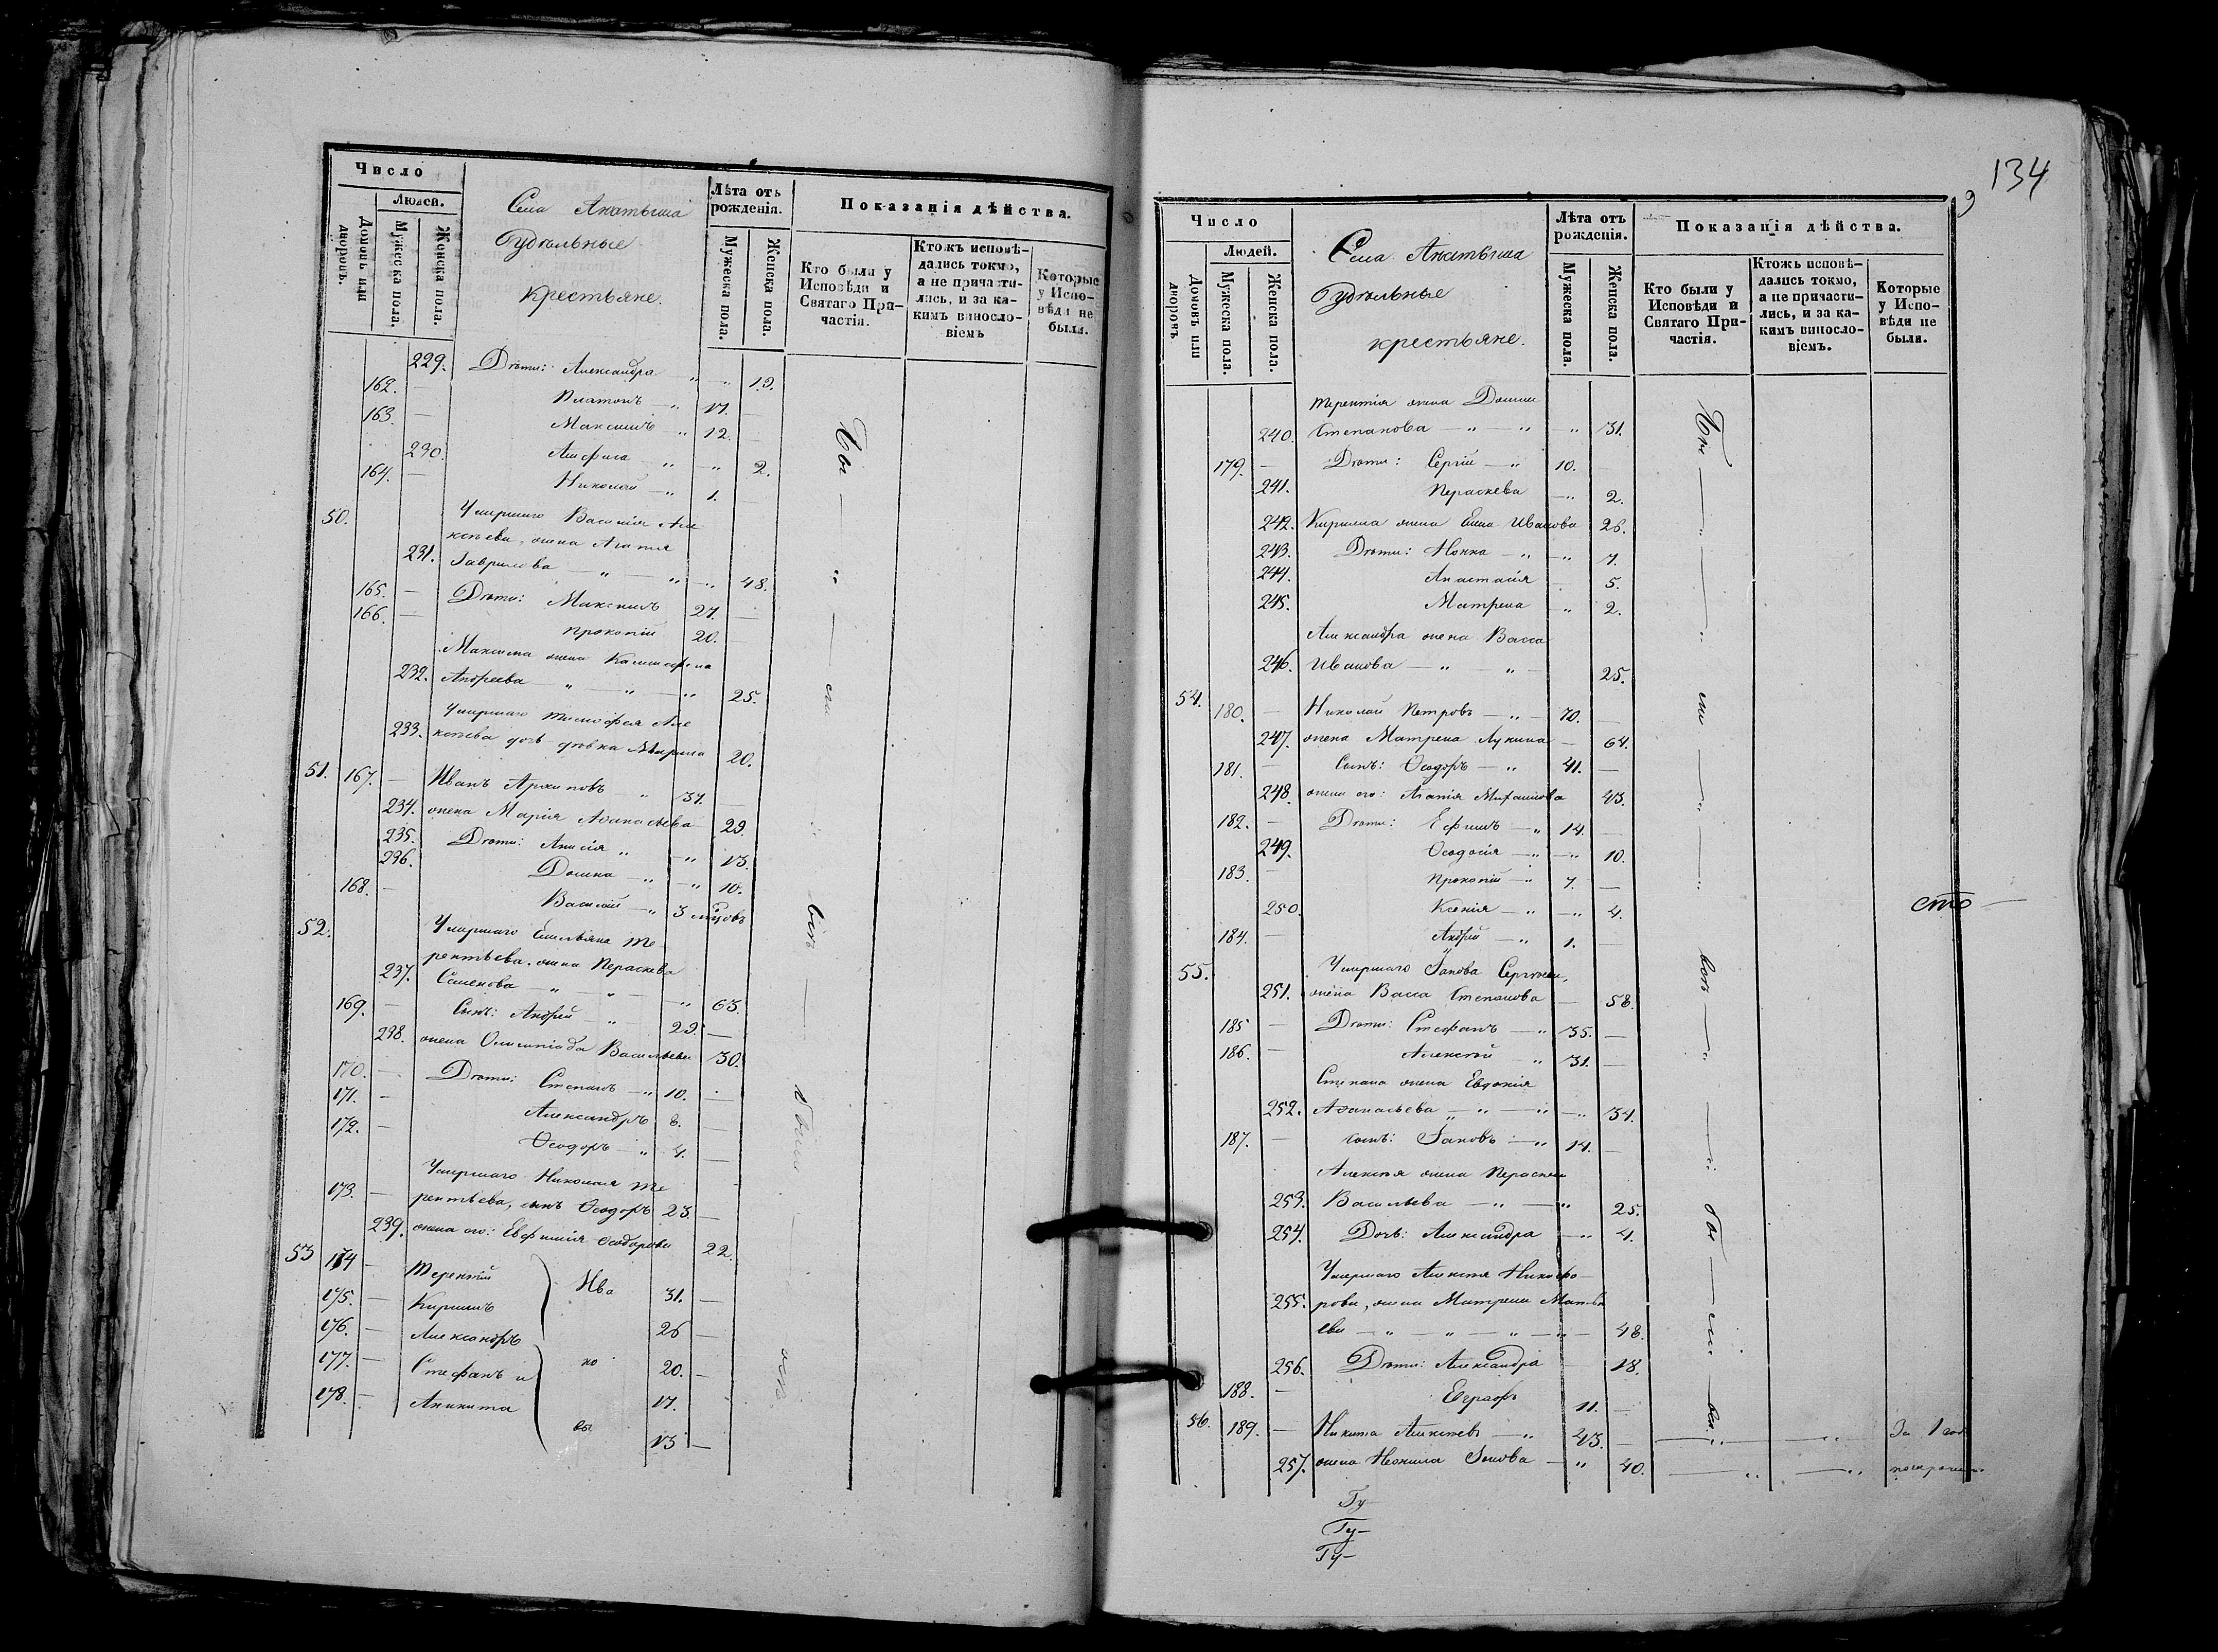 Число
Людей.
Домовъ или дворовъ.
Мужеска пола.
Женска пола.
Села Анатыша
Удѣльные
крестьяне.
Лѣта отъ рожденія.
Мужеска пола.
Женска пола.
Показанія дѣйства.
Кто были у Исповѣди и Святаго Причастія.
Ктожъ исповѣдались токмо, а не причастились, и за какимъ винословіемъ
Которые у Исповѣди не были.
229. Дѣти: Александра — „ — „ 19.
162. — Платонъ — „ 17. —
163. — Максимъ — „ 12. —
230. Анфиса „ — „ 2.
164. — Николай — „ 1.
50. Умершаго Василія Але
ксѣева, жена Агапія
231. Гаврилова — „ — „ — „ 48.
165. — Дѣти: Максимъ 27. —
166. — Прокопій 20. —
Максима жена Каллисфена
232. Андреева — „ — „ — „ 25.
Умершаго Тимофея Але
233. ксѣева дочь дѣвка Марина 20.
51. 167. — Иванъ Архиповъ — „ 37.
234. жена Марія Аѳанасьева 29.
235. Дѣти: Анисія „ — „ 13.
236. Домна — „ — „ 10.
168. — Василій — „ 3 мѣсяцовъ
52. Умершаго Емельяна Те-
рентьева, жена Параскева
237. Семенова — „ — „ — „ 63.
169. — Сынъ: Андрей — „ 29. —
238. жена Олимпіада Васильева 30.
170. — Дѣти: Степанъ — „ 10. —
171. — Александръ 8. —
172. — Ѳеодоръ — „ 4. —
Умершаго Николая Те
173. — рентьева, сынъ Ѳеодоръ 23. —
239. жена его: Евфимія Ѳеодорова 22.
53 174 — Терентій Ива 31. —
175. — Кирилъ 26 —
176. — Александръ но 20. —
177. — Стефанъ и 17.
178. — Аникита вы 13 —
Бы — „ — ли — всѣ —
134
9
Число
Людей.
Домовъ или дворовъ
Мужеска пола.
Женска пола.
Села Анатыша
Удѣльные
крестьяне.
Лѣта отъ рожденія.
Мужеска пола.
Женска пола.
Показанія дѣйства.
Кто были у Исповѣди и Святаго Причастія.
Ктожъ исповѣдались токмо, а не причастились, и за какимъ винословіемъ.
Которые у Исповѣди не были.
Терентія жена Домна
240. Степанова — „ — „ — „ 31.
179. — Дѣти: Сергій — „ 10. —
241. Параскева — „ 2.
242. Кирилла жена Елена Иванова 26.
243. Дѣти: Нонна — „ — „ 7.
244. Анастасія — 5.
245. Матрена — „ 2.
Александра жена Васса
246. Иванова — „ — „ — 25.
54. 180. — Николай Петровъ — „ — 70. —
247. жена Матрена Лукина — 64.
181. — Сынъ: Ѳеодоръ — „ 41. —
248. жена его: Агапія 43.
182. — Дѣти: Ефимъ — „ 14. —
249. Ѳеодосія — „ — „ 10.
183. — Прокопій — „ 7. —
250. Ксенія — „ — „ 4.
184. — Андрей — „ 1. —
55. Умершаго Іакова Сергѣева,
251. жена Васса Степанова — 58.
185 — Дѣти: Стефанъ — „ 35. —
186. — Алексѣй — „ 31. —
Степана жена Евдокія
252. Аѳанасьева — „ — „ — „ 34.
187. — сынъ: Іаковъ — „ 14. —
Алексѣя жена Параскева
253. Васильева — „ — „ 25.
254. Дочь: Александра — „ 4.
Умершаго Алексѣя Никифо-
255. рова, жена Матрена Матвѣ
ева — „ — „ — „ — „ — 48.
256. Дѣти: Александра — 18.
188. — Евграфъ 11. —
56. 189. — Никита Алексѣевъ — „ 43. —
257. жена Неонила — „ 40.
сто —
За
Ту-
Ту-
Ту-